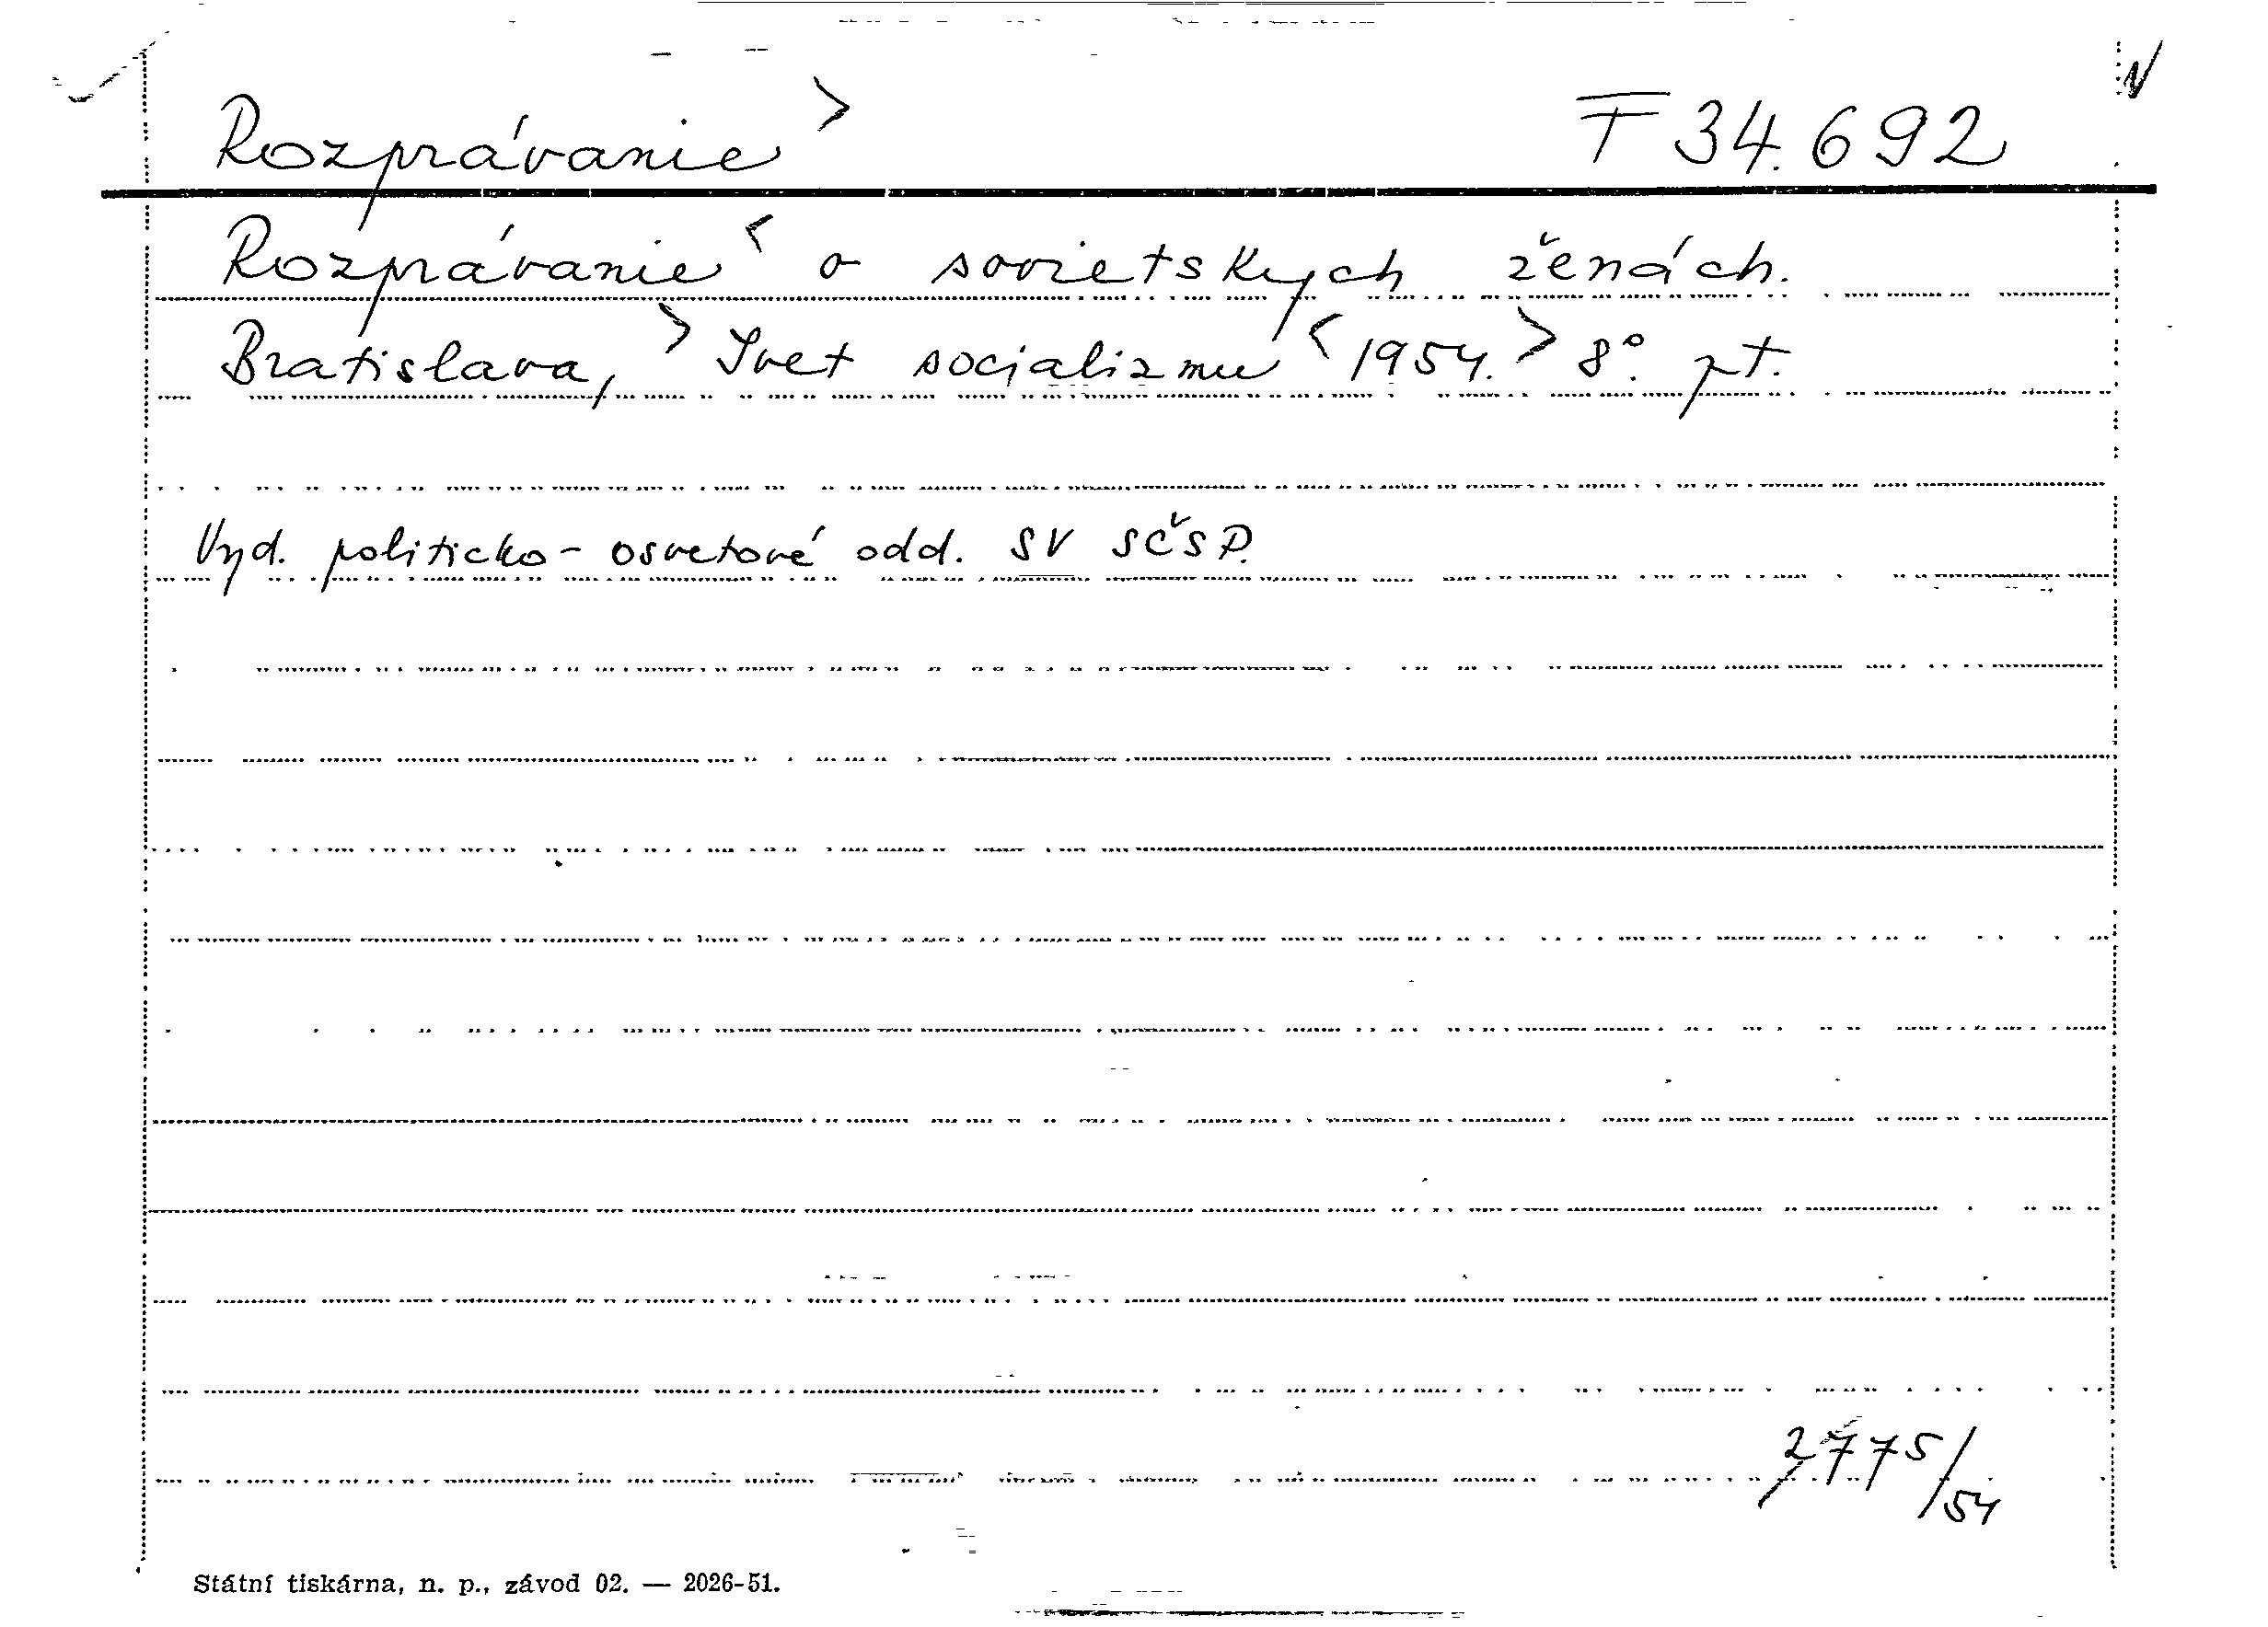 Rozprávanie > F 34.692 N
Rozprávanie < o sovietskych ženách.
Bratislava, > Svet socializmu < 1954. > 8°. pt.
Vyd. politicko-osvetové odd. SV SČSP.
2775/54
Státní tiskárna, n. p., závod 02. — 2026-51.